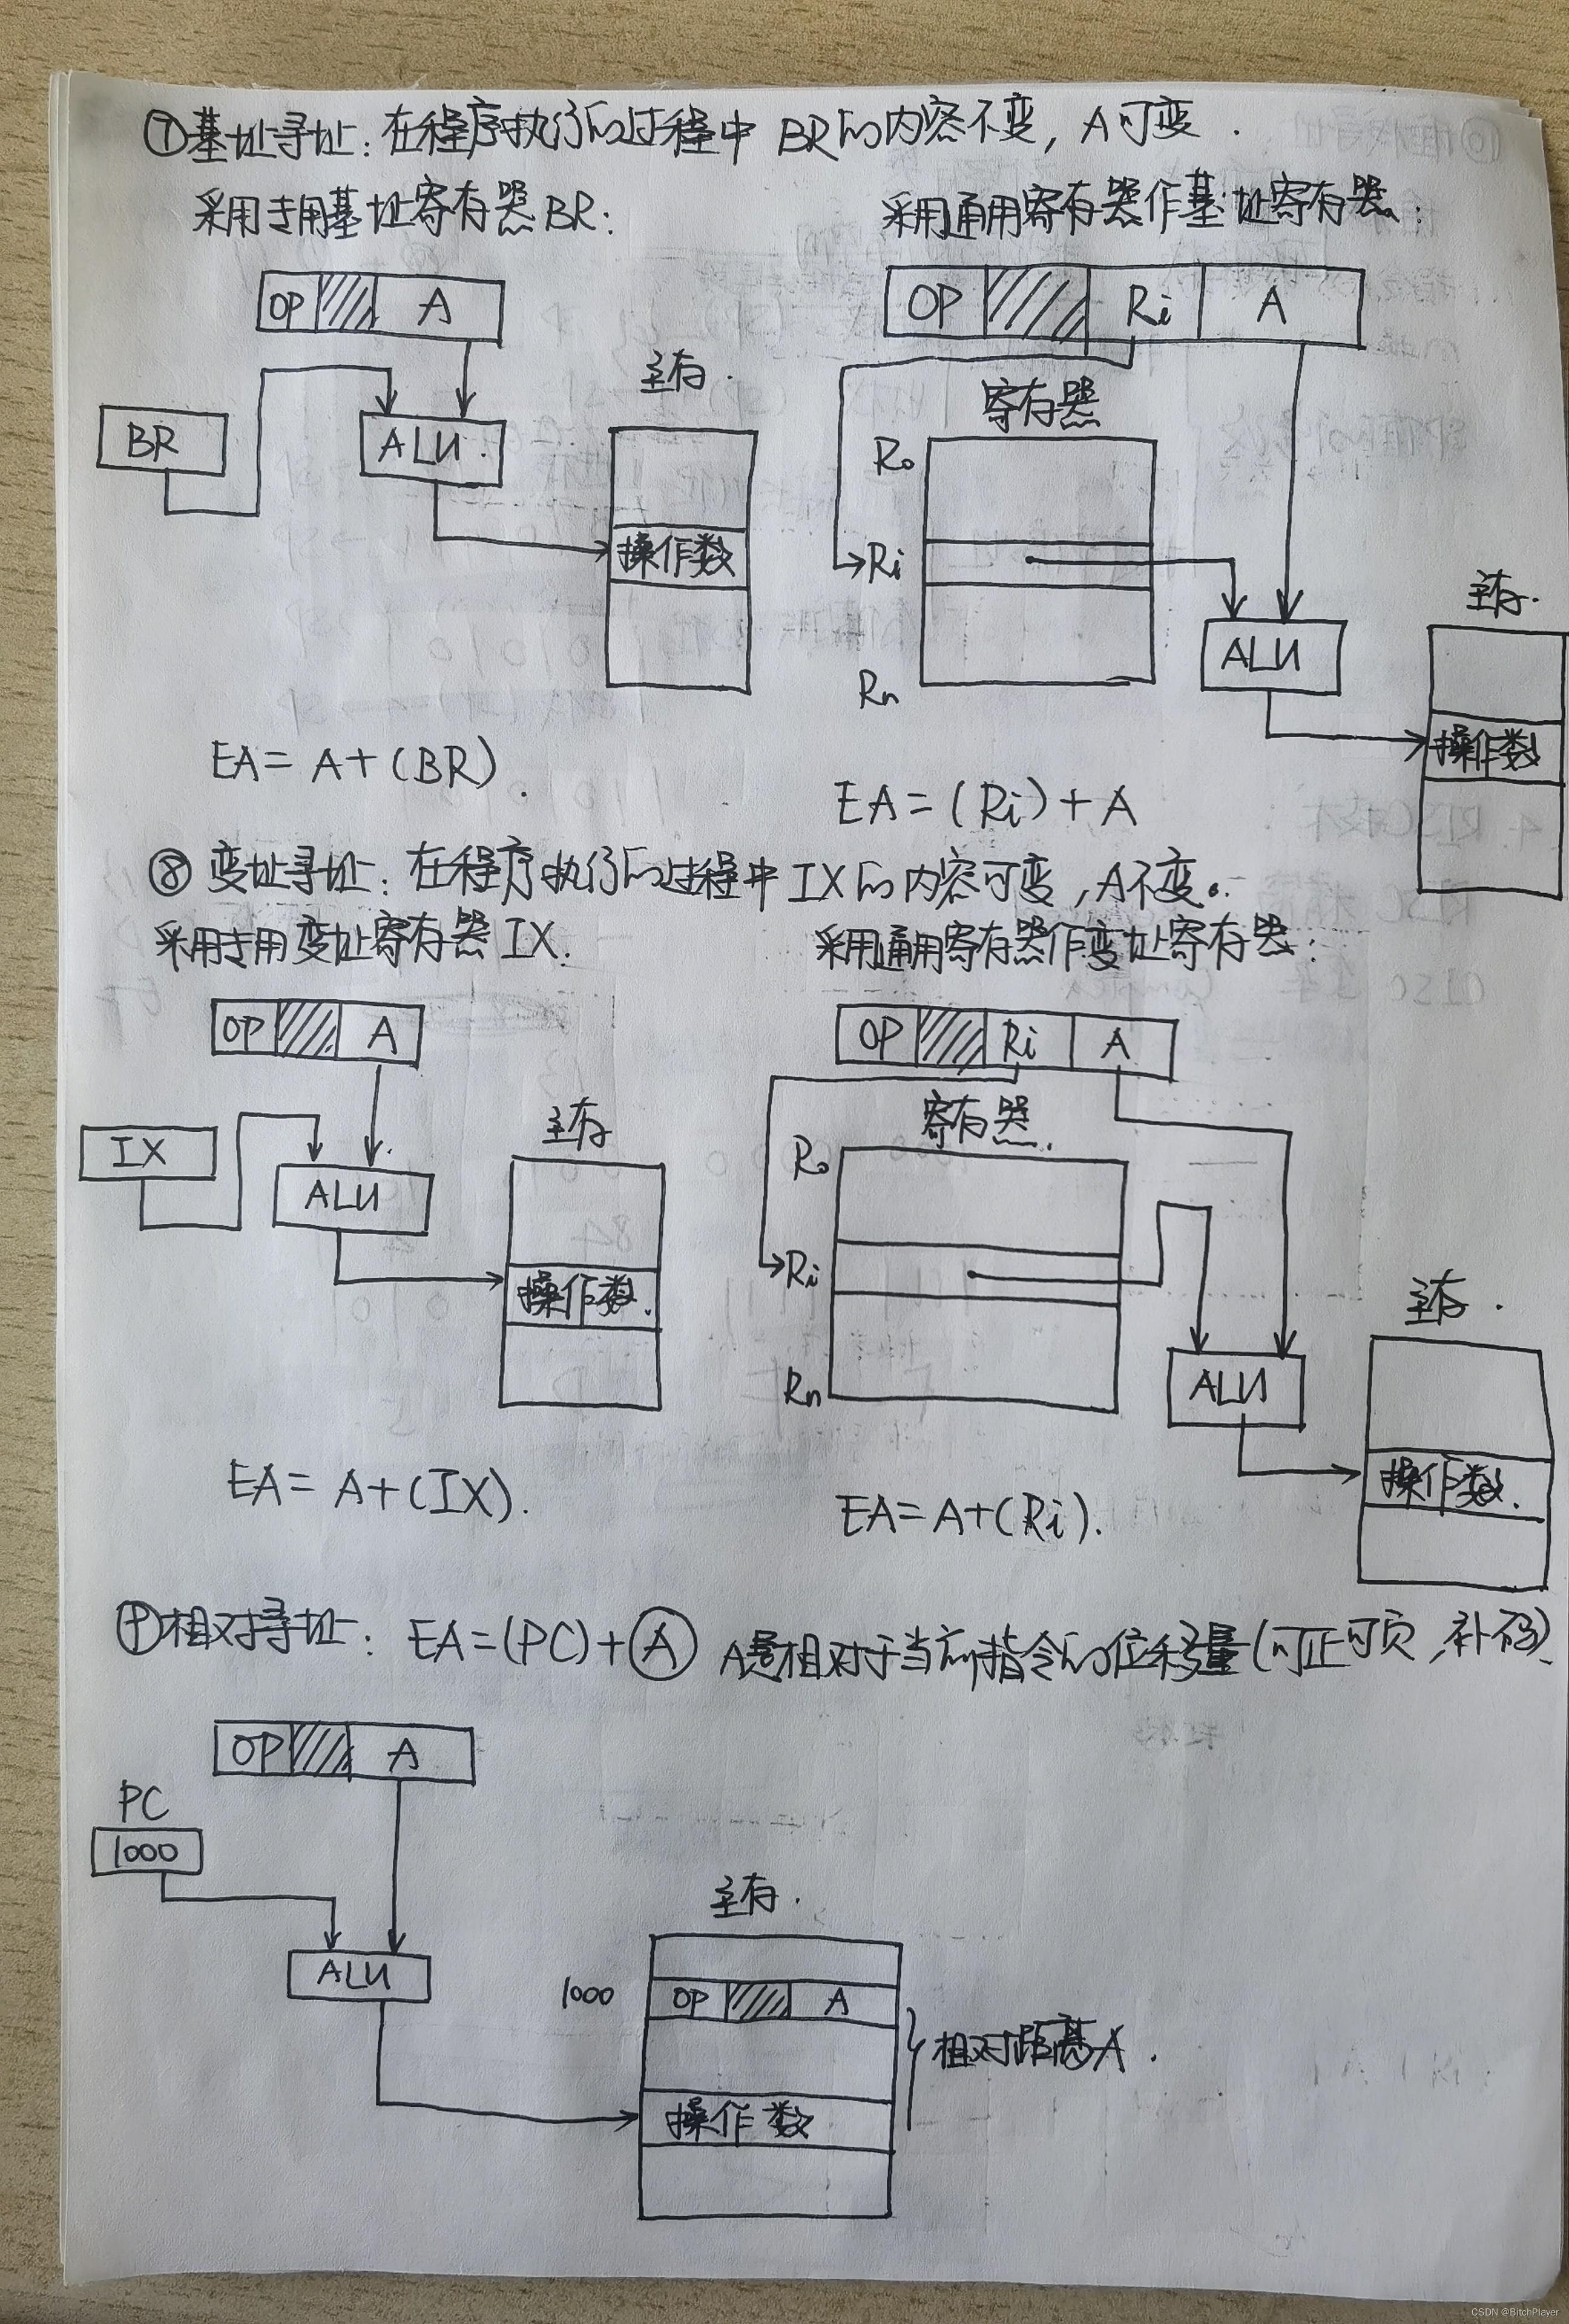 ⑦基址寻址：在程序执行的过程中 BR的内容不变，A可变.
采用专用基址寄存器BR：
采用通用寄存器作基址寄存器：
OP A
OP Ri A
主存.
寄存器
BR
ALU.
R0
操作数
Ri
主存.
ALU
Rn
操作数
EA= A+(BR).
EA=(Ri)+A
⑧ 变址寻址：在程序执行的过程中IX的内容可变，A不变。
采用专用变址寄存器IX.
采用通用寄存器作变址寄存器：
OP A
OP Ri A
寄存器.
主存
IX
R0
ALU
Ri
操作数.
主存.
Rn
ALU
操作数.
EA= A+(IX).
EA=A+(Ri).
相对寻址：EA=(PC)+A A是相对于当前指令的位移量(可正可负,补码)
OP A
PC
1000
主存.
ALU
1000 OP A
相对距离A.
操作数
CSDN @BitchPlayer